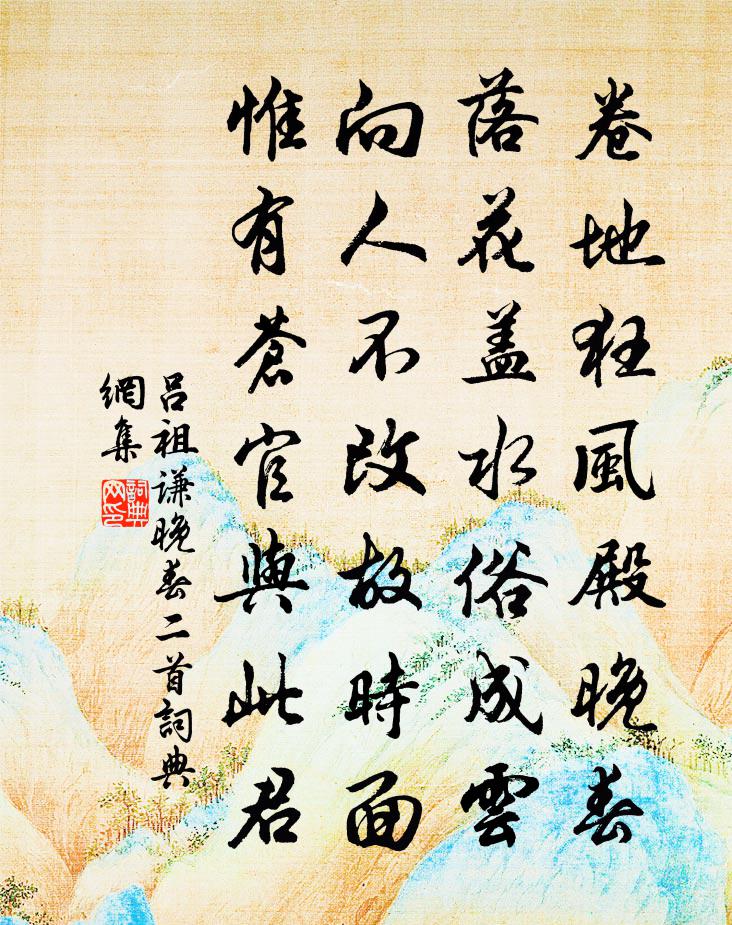 卷地狂風殿晚春
落花盖水俗成雲
向人不改故時面
惟有蒼官與此君
吕祖谦晚春二首詞典
網集
詞典網印